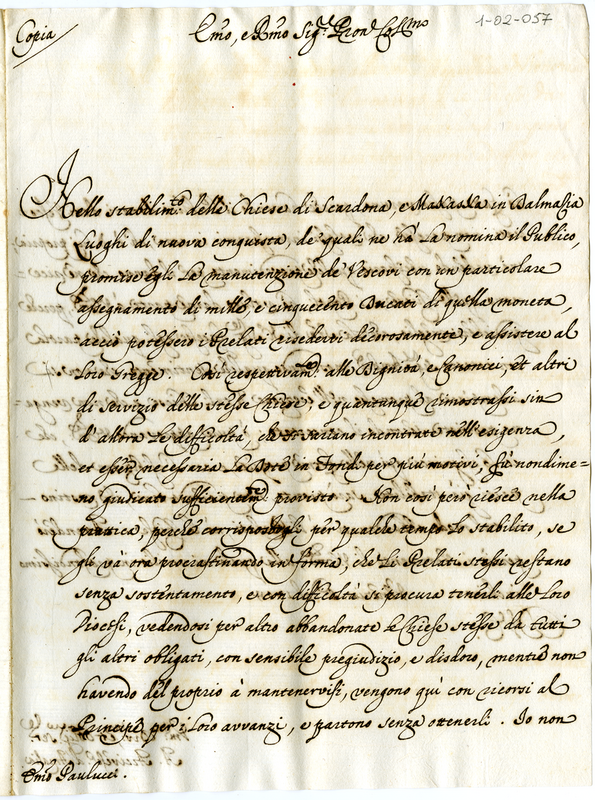 Copia
1-02-057
Emo, e Rmo Sig.r Pron Colmo
Nello stabilim.to delle Chiese di Scardona, e Makaska in Dalmatia
Luoghi di nuova conquista, de quali ne hà la nomina il Publico,
promise egli la manutenzione de Vescovi con un particolare
assegnamento di mille, e cinquecento Ducati di quella moneta,
acciò potessero i Prelati risedervi decorosamente, e assistere al
loro Gregge. Così respettivam.te alle Dignità, e Canonici, et altri
di servizio delle stesse Chiese; e quantunque rimostrassi sin
d'allora le difficoltà, che si sariano incontrate nell'esigenza,
et esser necessaria la Dote in Fondi per più motivi, fù nondime=
no giudicato sufficientem.te provisto. Non così però riesce nella
prattica, perche corrispostogli per qualche tempo lo stabilito, se
gli và ora procrastinando in forma, che li Prelati stessi restano
senza sostentamento, e con difficoltà si procura tenerli alle loro
Diocesi, vedendosi per altro abbandonate le Chiese stesse da tutti
gli altri obligati, con sensibile pregiudizio, e disdoro, mentre non
havendo del proprio à mantenervisi, vengono quì con ricorsi al
Principe per i loro avvanzi, e partono senza ottenerli. Io non
Emo Paulucci.